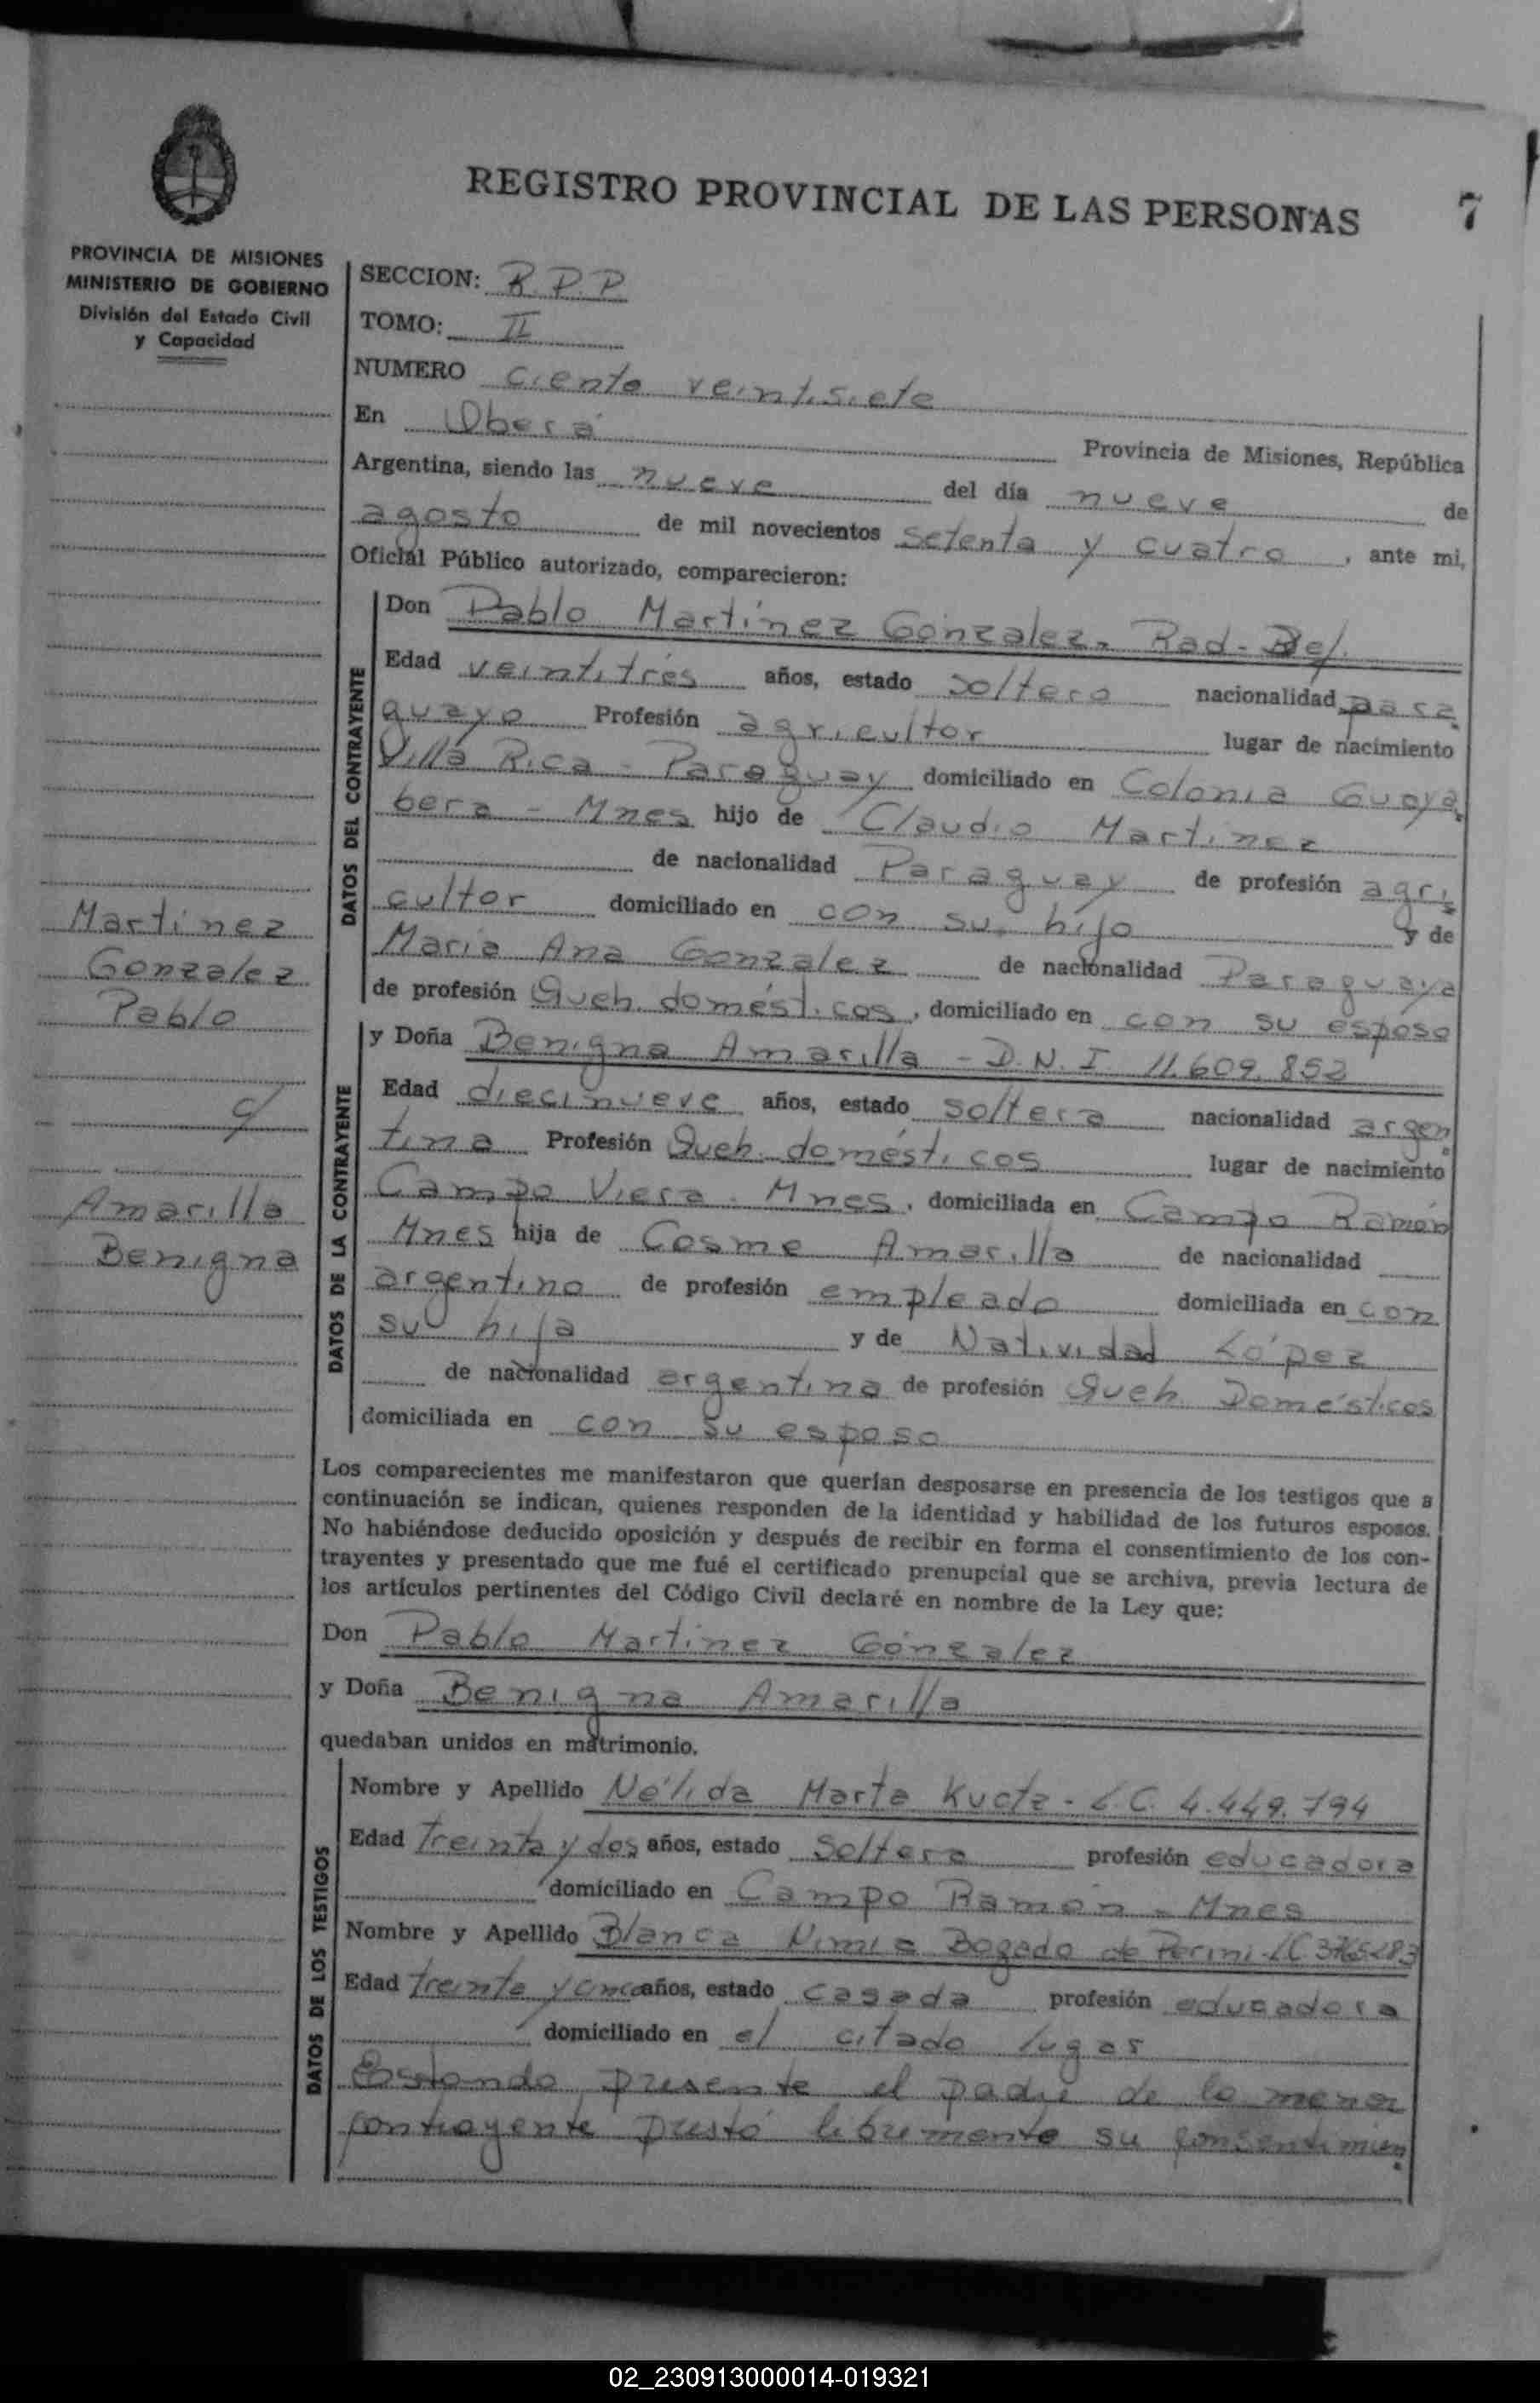 REGISTRO PROVINCIAL DE LAS PERSONAS 7
PROVINCIA DE MISIONES
MINISTERIO DE GOBIERNO
División del Estado Civil
y Capacidad
SECCION: R.P.P
TOMO: II
NUMERO ciento veintisiete
En Oberá Provincia de Misiones, República
Argentina, siendo las nueve del día nueve de
agosto de mil novecientos setenta y cuatro, ante mi,
Oficial Público autorizado, comparecieron:
DATOS DEL CONTRAYENTE
Don Pablo Martinez Gonzalez. Rad-Def.
Edad veintitrés años, estado soltero nacionalidad para
guayo Profesión agricultor lugar de nacimiento
Villa Rica - Paraguay domiciliado en Colonia Guaya
bera - Mnes hijo de Claudio Martinez
de nacionalidad Paraguay de profesión agri
cultor domiciliado en con su hijo y de
Maria Ana Gonzalez de nacionalidad Paraguaya
de profesión Queh. domésticos, domiciliado en con su esposo
Martinez
Gonzalez
Pablo
c/
Amarilla
Benigna
DATOS DE LA CONTRAYENTE
y Doña Benigna Amarilla - D.N.I 11.609.852
Edad diecinueve años, estado soltera nacionalidad argen
tina Profesión Queh. domésticos lugar de nacimiento
Campo Viera. Mnes, domiciliada en Campo Ramón
Mnes hija de Cosme Amarilla de nacionalidad
argentino de profesión empleado domiciliada en con
su hija y de Natividad López
de nacionalidad argentina de profesión Queh. Domésticos
domiciliada en con su esposo
Los comparecientes me manifestaron que querían desposarse en presencia de los testigos que a
continuación se indican, quienes responden de la identidad y habilidad de los futuros esposos.
No habiéndose deducido oposición y después de recibir en forma el consentimiento de los con-
trayentes y presentado que me fué el certificado prenupcial que se archiva, previa lectura de
los artículos pertinentes del Código Civil declaré en nombre de la Ley que:
Don Pablo Martinez Gónzalez
y Doña Benigna Amarilla
quedaban unidos en matrimonio.
DATOS DE LOS TESTIGOS
Nombre y Apellido Nélida Marta - L.C. 4.449.794
Edad treinta y dos años, estado soltera profesión educadora
domiciliado en Campo Ramón - Mnes
Nombre y Apellido Blanca Bogado de Perini - LC
Edad treinta y cinco años, estado casada profesión educadora
domiciliado en el citado lugar
Estando presente el padre de la menor
contrayente prestó libremente su consentimien
02_230913000014-019321